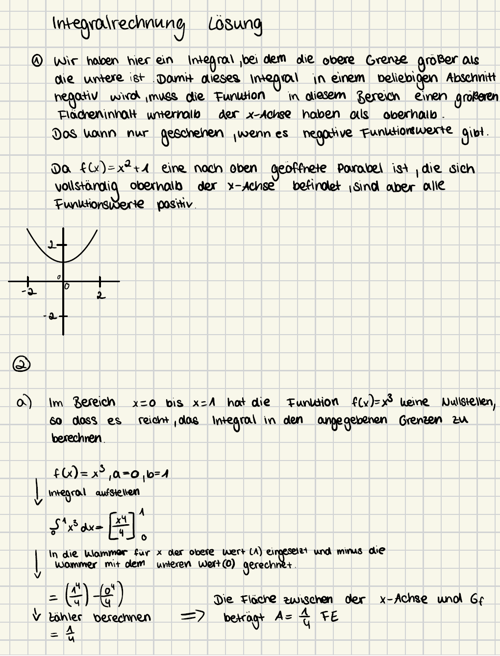 Integralrechnung Lösung
① Wir haben hier ein Integral, bei dem die obere Grenze größer als
die untere ist. Damit dieses Integral in einem beliebigen Abschnitt
negativ wird, muss die Funktion in diesem Bereich einen größeren
Flächeninhalt unterhalb der x-Achse haben als oberhalb.
Das kann nur geschehen, wenn es negative Funktionswerte gibt.
Da f(x)=x²+1 eine nach oben geöffnete Parabel ist, die sich
vollständig oberhalb der x-Achse befindet, sind aber alle
Funktionswerte positiv.
2
0
-2 0 2
-2
②
a) Im Bereich x=0 bis x=1 hat die Funktion f(x)=x³ keine Nullstellen,
so dass es reicht, das Integral in den angegebenen Grenzen zu
berechnen.
f(x)=x³, a=0, b=1
↓ Integral aufstellen
₀∫¹x³dx=[x⁴/4]¹₀
↓ In die Klammer für x der obere Wert (1) eingesetzt und minus die
Klammer mit dem unteren Wert (0) gerechnet.
=(1⁴/4)-(0⁴/4)
↓ Zähler berechnen
=1/4
=> Die Fläche zwischen der x-Achse und Gf
beträgt A=1/4 FE